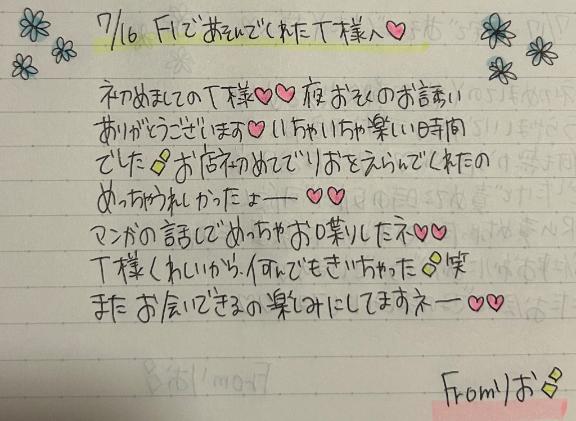 7/16 F1であそんでくれたT様へ♡
初めましてのT様♡♡夜おそくのお誘い
ありがとうございます♡いちゃいちゃ楽しい時間
でした お店初めてでりおをえらんでくれたの
めっちゃうれしかったょー♡♡
マンガの話しでめっちゃお口喋りしたネ♡♡
T様くわしいから、何んでもきいちゃった 笑
またお会いできるの楽しみにしてますネー♡♡
Fromりお